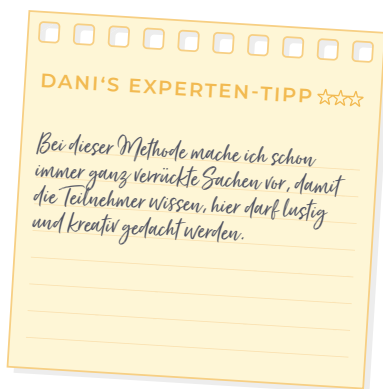 DANI‘S EXPERTEN-TIPP
Bei dieser Methode mache ich schon
immer ganz verrückte Sachen vor, damit
die Teilnehmer wissen, hier darf lustig
und kreativ gedacht werden.